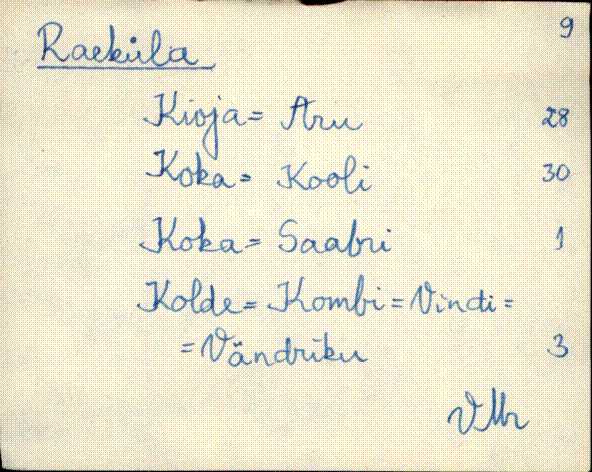 9
Raeküla
Kioja = Aru 28
Koka = Kooli 30
Koka = Saabri 1
Kolde = Kombi = Vindi =
= Vändriku 3
VMr